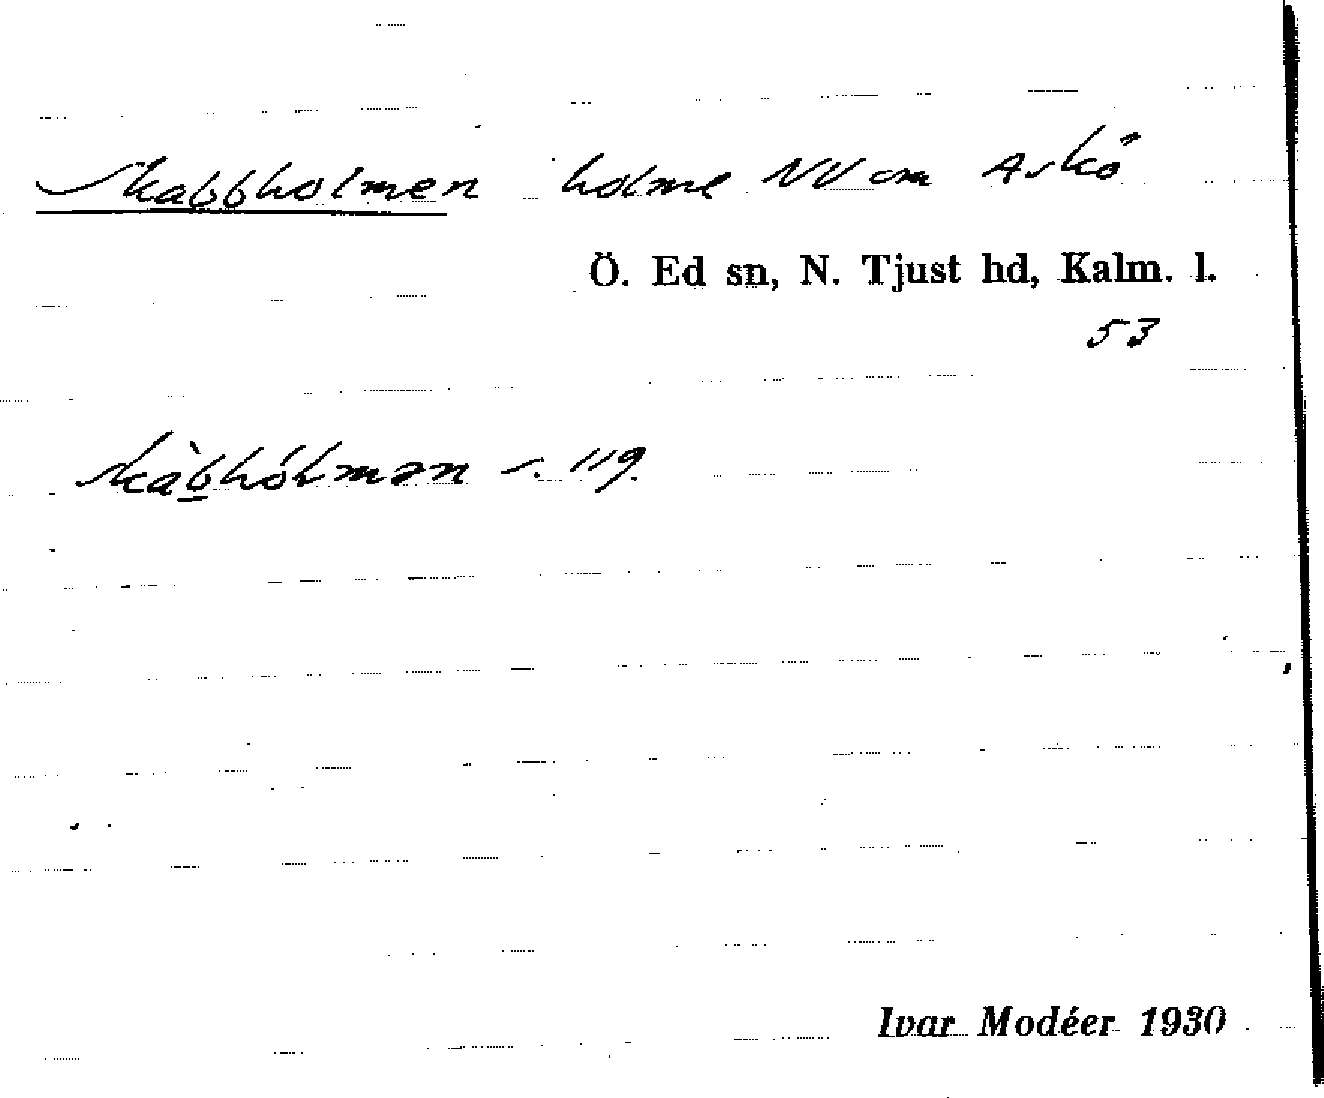 Skabbholmen holme NV om Askö
Ö. Ed sn, N. Tjust hd, Kalm. l.
53
skàb̲hólmən s. 119.
Ivar Modéer 1930